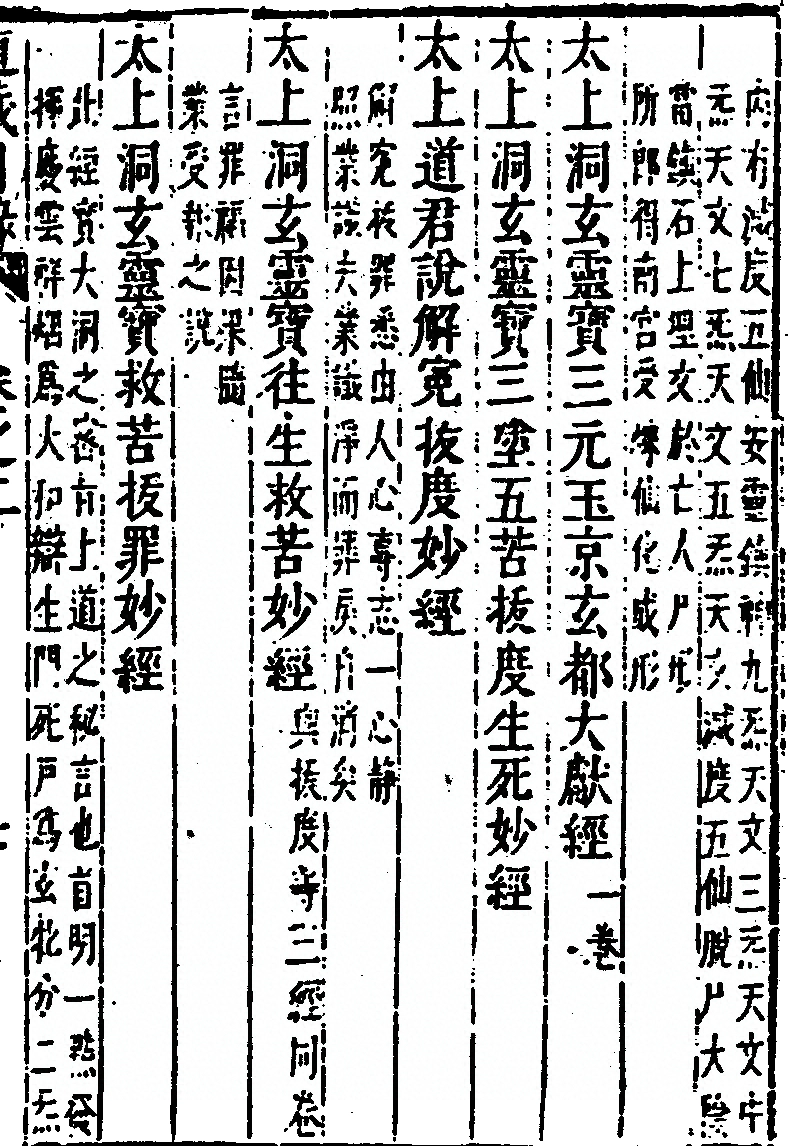 內有滅度五仙安靈鎮神九炁天文三炁天文中
炁天文七炁天文五炁天文滅度五仙脫尸大陰
當鎮石上埋文於亡人尸形
所即得南宮受煉仙化成形
太上洞玄靈寶三元玉京玄都大獻經一卷
太上洞玄靈寶三塗五苦拔度生死妙經
太上道君說解冤拔度妙經
解冤拔罪悉由人心專志一心靜
照業識矣業識淨而罪戾自消矣
太上洞玄靈寶往生救苦妙經與拔度等三經同卷
言罪福因果隨
業受報之說
太上洞玄靈寶救苦拔罪妙經
此經實大洞之密旨上道之秘言也首明一點發
揮慶雲祥煙爲人仰辯生門死戶爲玄牝分二炁